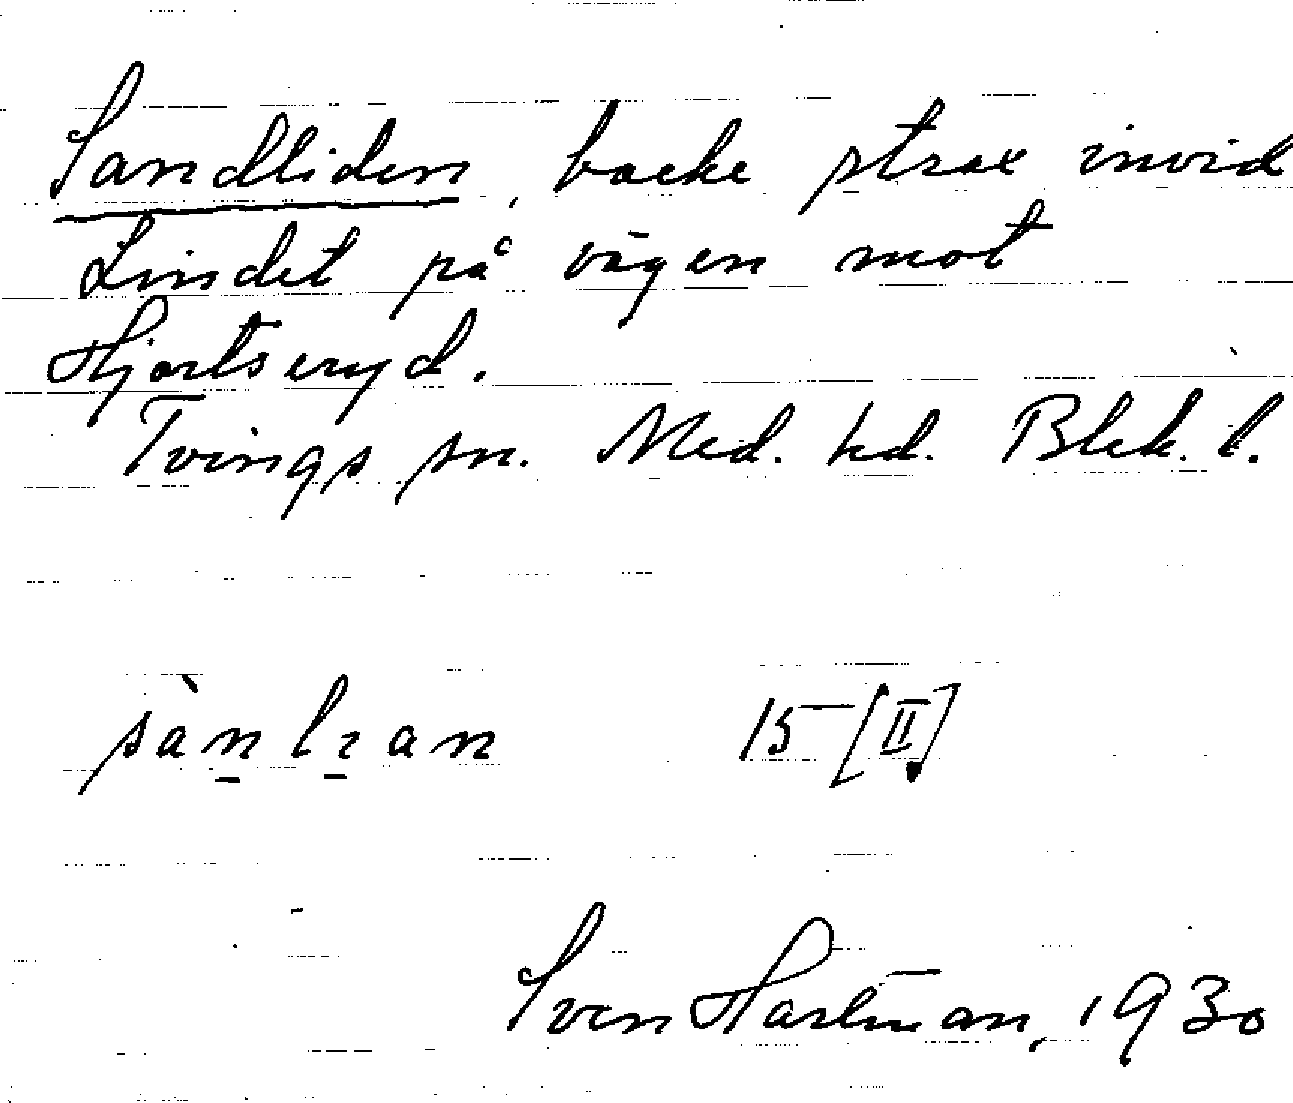 Sandliden, backe strax invid
Lindet på vägen mot
Hjortseryd.
Tvings sn. Med. hd. Blek. l.
15 [II]
Sven Hartman, 1930